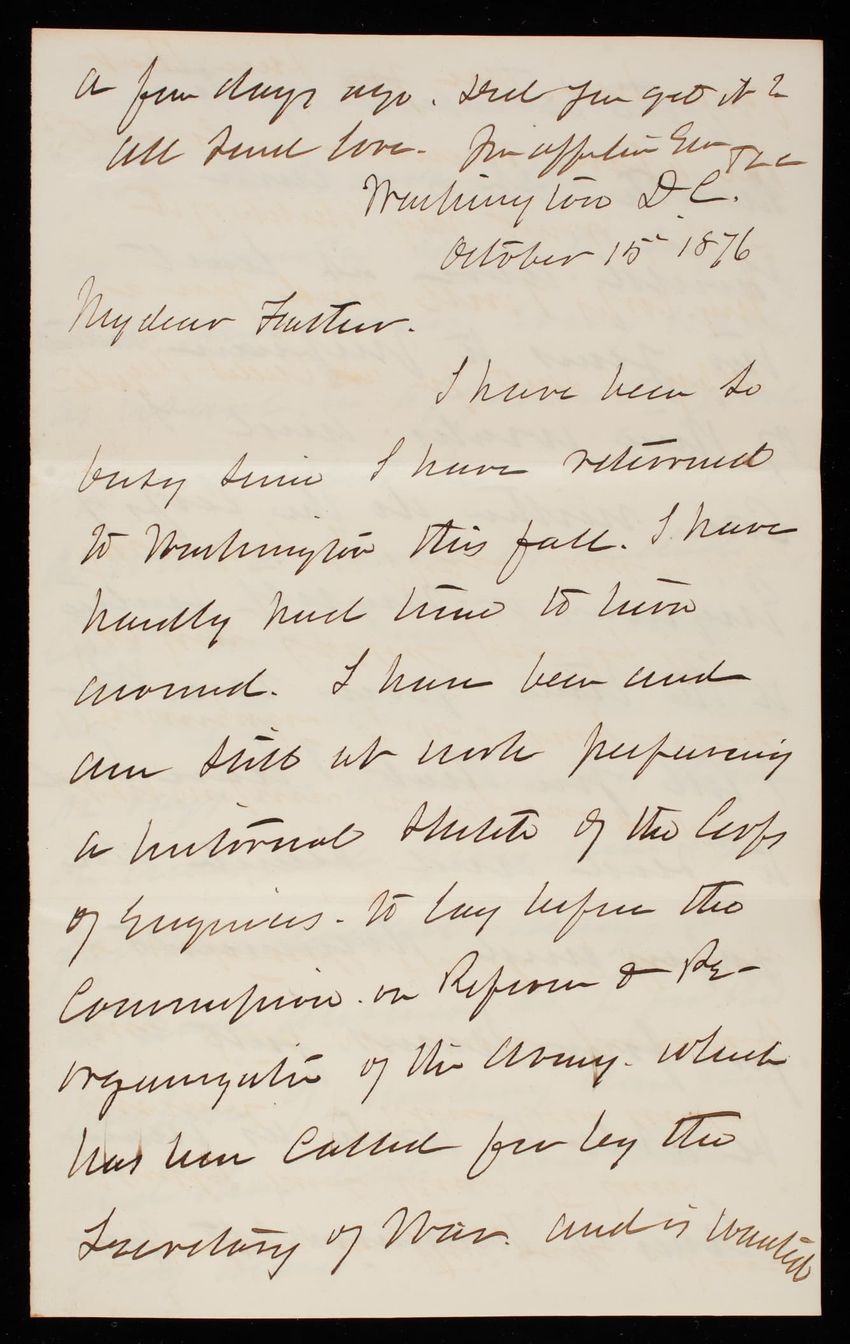 a few days ago. Did you get it?
all send love. Your affectionate Son
Washington D.C.
October 15th 1876
My dear Father.
I have been so
busy since I have returned
to Washington this fall. I have
hardly had time to turn
around. I have been and
am still at work preparing
a historical sketch of the Corps
of Engineers. to lay before the
Commission. on Reform & Re-
organization of the Army. which
has been called for by the
Secretary of War. and is wanted